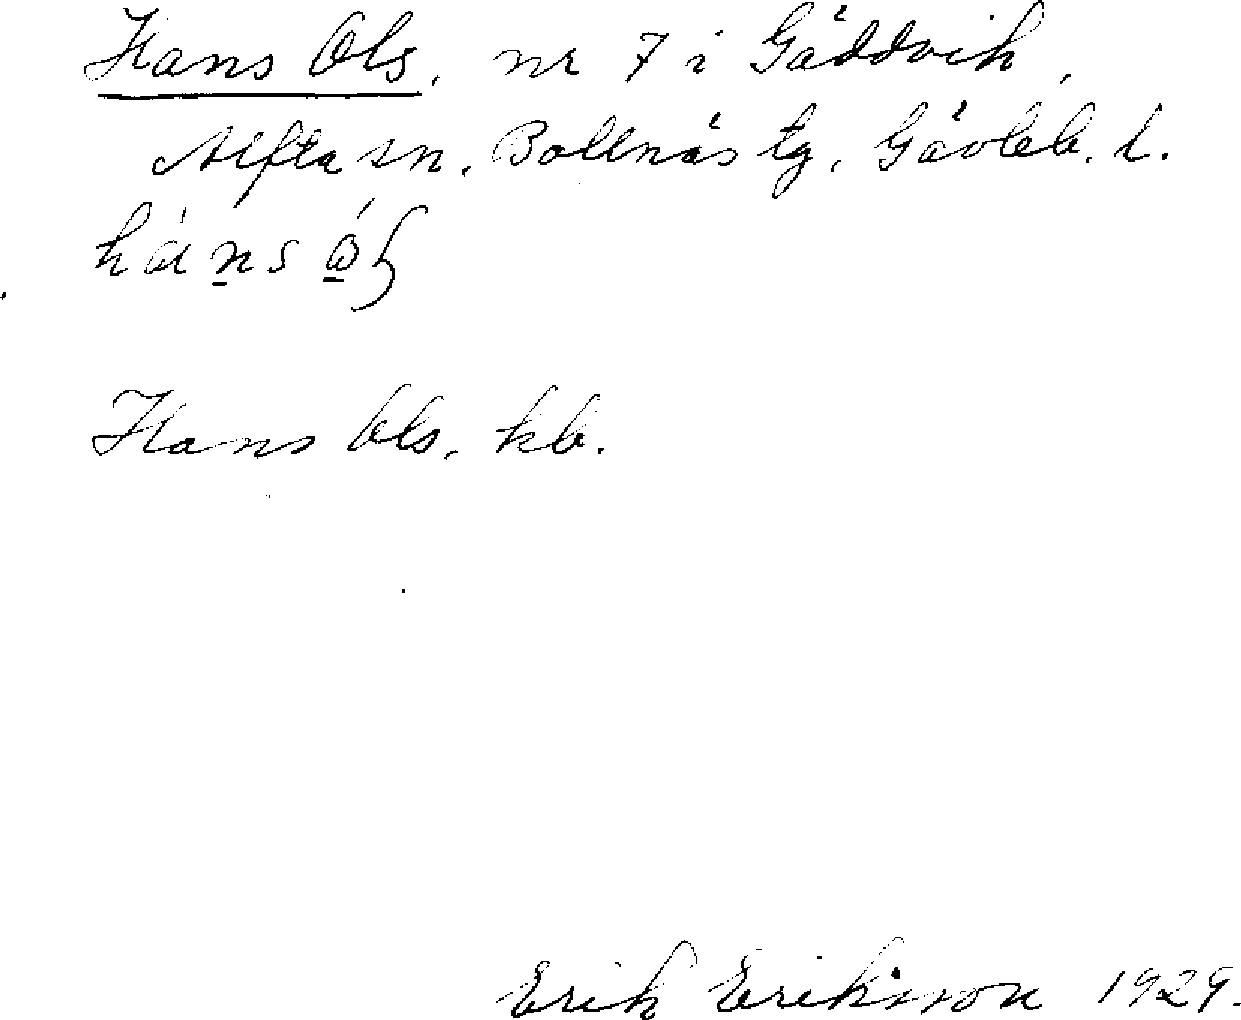 Hans Ols, nr 7 i Gäddvik,
Alfta sn, Bollnäs tg, Gävleb. l.
Hans Ols, kb.
Erik Eriksson 1929.